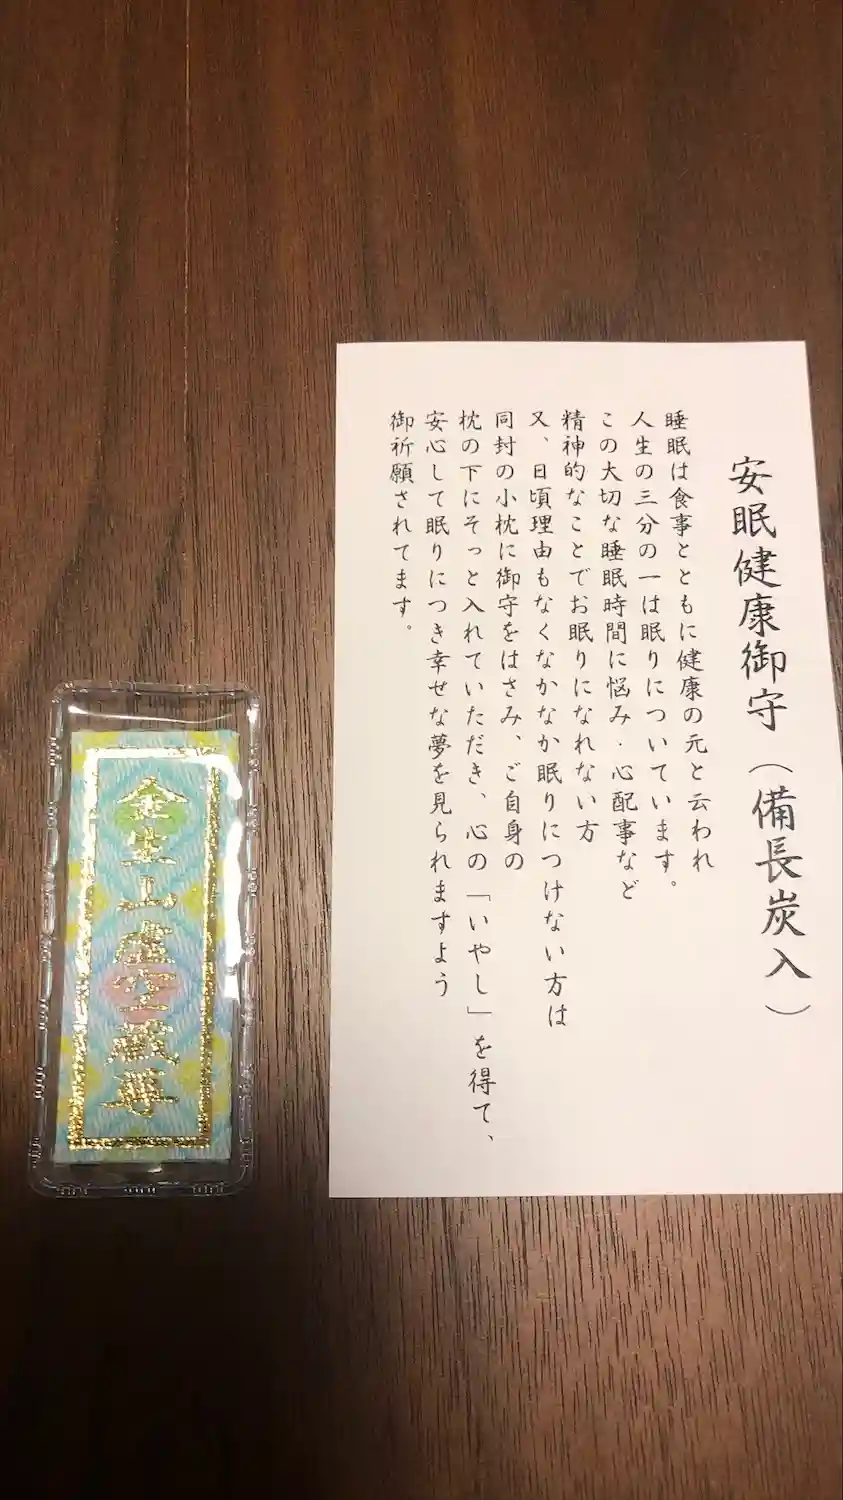 安眠健康御守（備長炭入）
睡眠は食事とともに健康の元と云われ
人生の三分の一は眠りについています。
この大切な睡眠時間に悩み・心配事など
精神的なことでお眠りになれない方
又、日頃理由もなくなかなか眠りにつけない方は
同封の小枕に御守をはさみ、ご自身の
枕の下にそっと入れていただき、心の「いやし」を得て、
安心して眠りにつき幸せな夢を見られますよう
御祈願されてます。
金生山虚空蔵尊